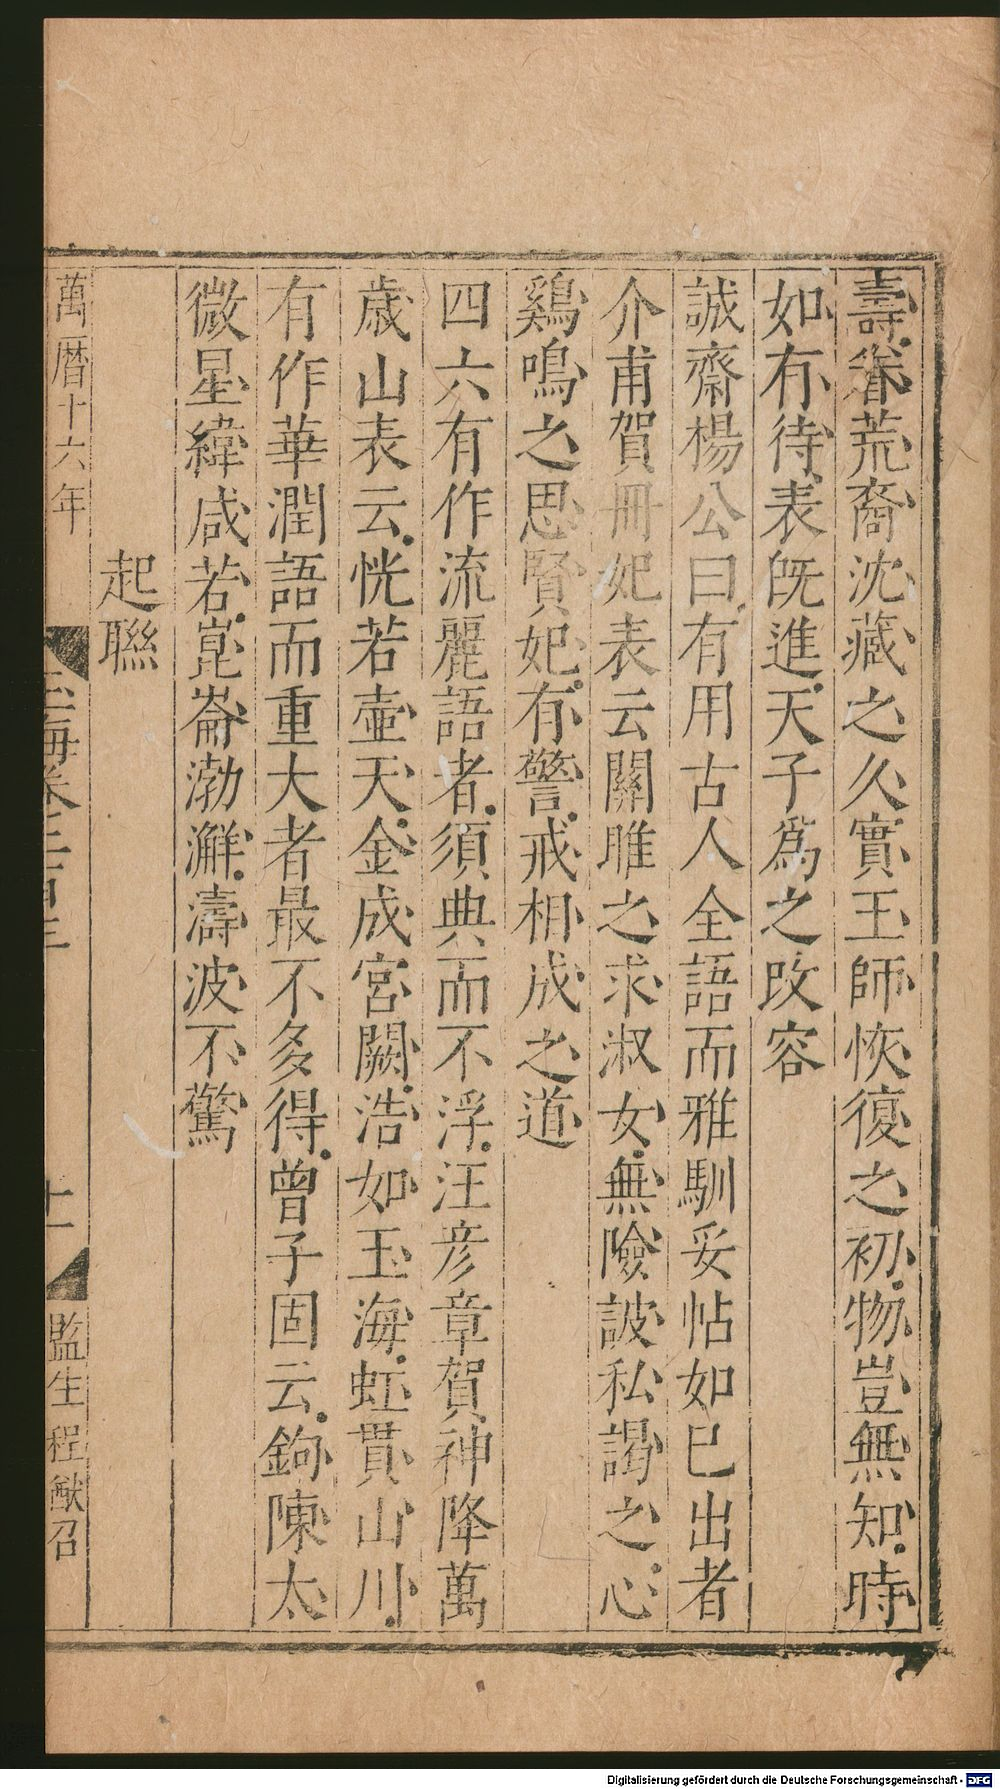 壽眷荒裔沈藏之久實王師恢復之初物豈無知時
如有待表旣進天子爲之改容
誠齋楊公曰有用古人全語而雅馴妥帖如已出者
介甫賀冊妃表云關雎之求淑女無險詖私謁之心
鷄鳴之思賢妃有警戒相成之道
四六有作流麗語者須典而不浮汪彥章賀神降萬
歲山表云恍若壺天金成宮闕浩如玉海虹貫山川
有作華潤語而重大者最不多得曾子固云鉤陳太
微星緯咸若崑崙渤澥濤波不驚
起聯
萬曆十六年
玉海卷二百三
十
監生程猷召
Digitalisierung gefördert durch die Deutsche Forschungsgemeinschaft - DFG